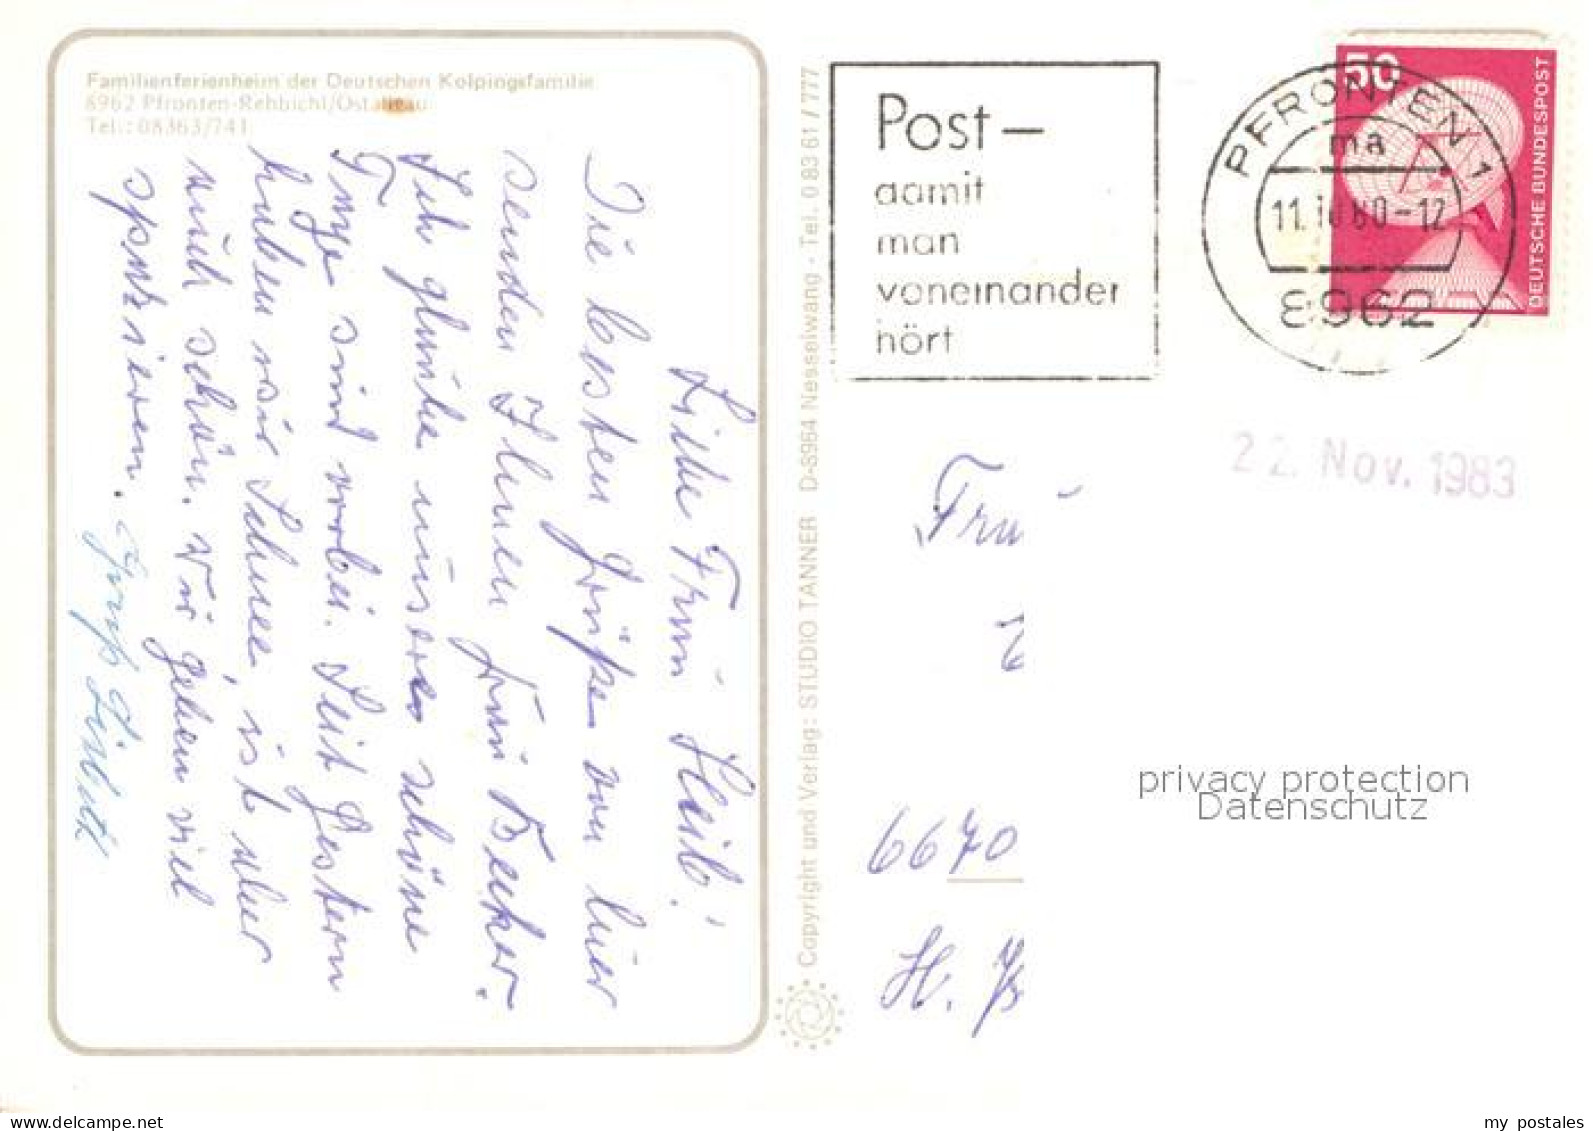 Familienferienheim der Deutschen Kolpingsfamilie
8962 Pfronten-Rehbichl/Ostallgäu
Tel.: 08363/741
Liebe Frau Heib!
Die besten Grüße von hier
senden Ihnen Frau Becker.
Ich glaube unsere schöne
Tage sind vorbei. Seit Gestern
haben wir Schnee, ist aber
auch schön. Wir gehen viel
spazieren.
Gruß
Copyright und Verlag: STUDIO TANNER D-8964 Nesselwang - Tel. 0 83 61 / 777
Post –
damit
man
voneinander
hört
PFRONTEN 1
ma
11. 80-12
8962
50
DEUTSCHE BUNDESPOST
22. Nov. 1983
Frau
6670
H.
privacy protection
Datenschutz
my postales